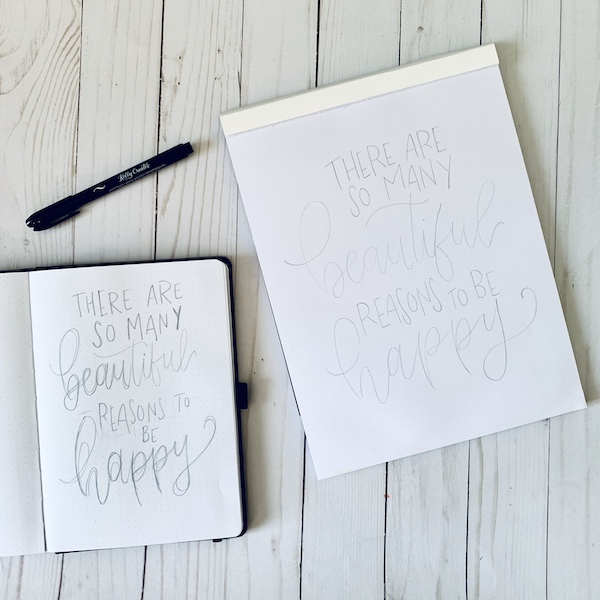 Kelly Creates
THERE ARE
SO MANY
beautiful
REASONS TO
BE
happy
THERE ARE
SO MANY
beautiful
REASONS TO BE
happy